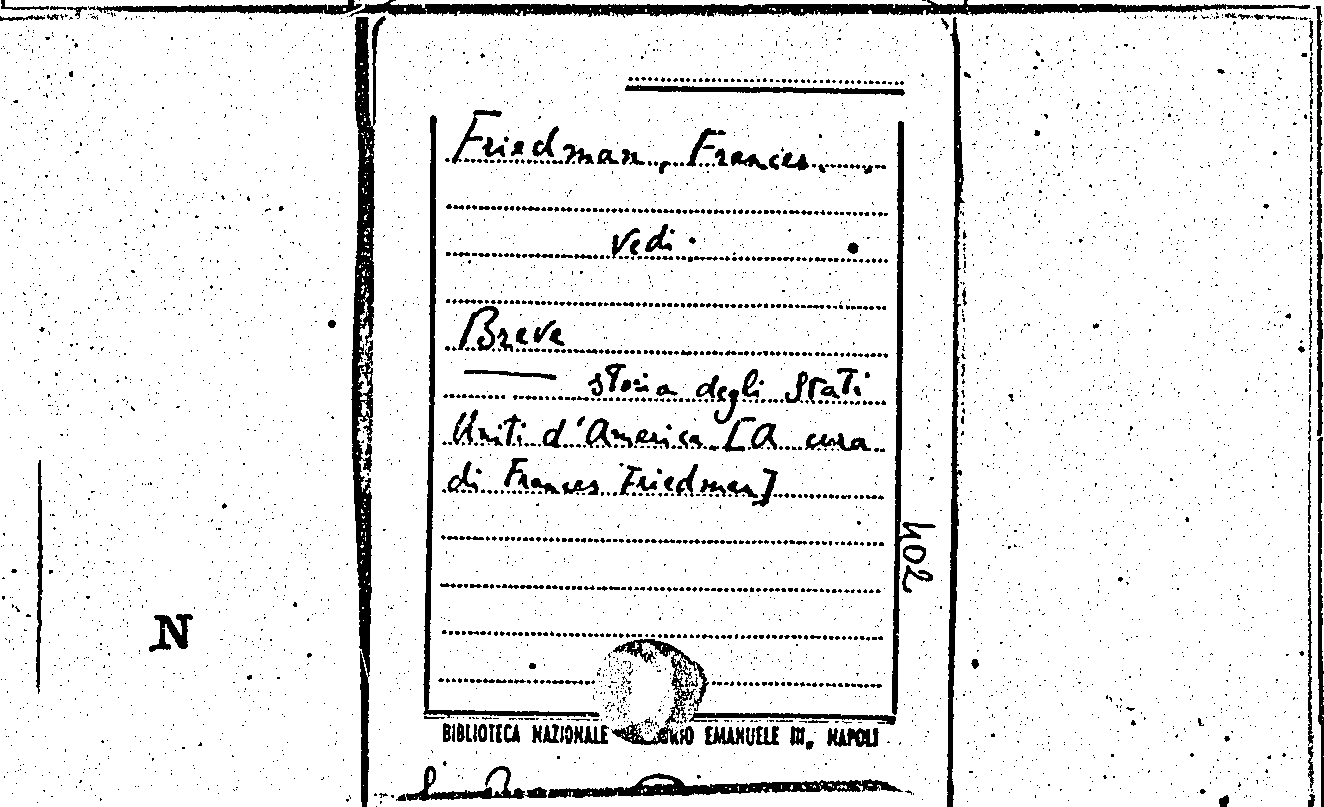 Friedman, Frances. ,
vedi.
Breve
storia degli Stati
Uniti d'America [A cura
di Frances Friedman]
402
N
BIBLIOTECA NAZIONALE EMANUELE III, NAPOLI